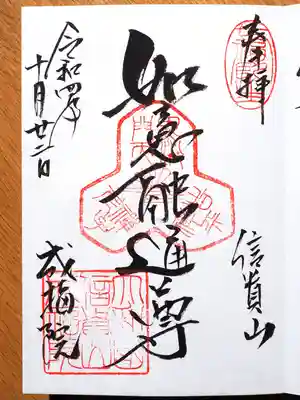 奉拝
信貴山
如意融通尊
令和四年
十月廿二日
成福院